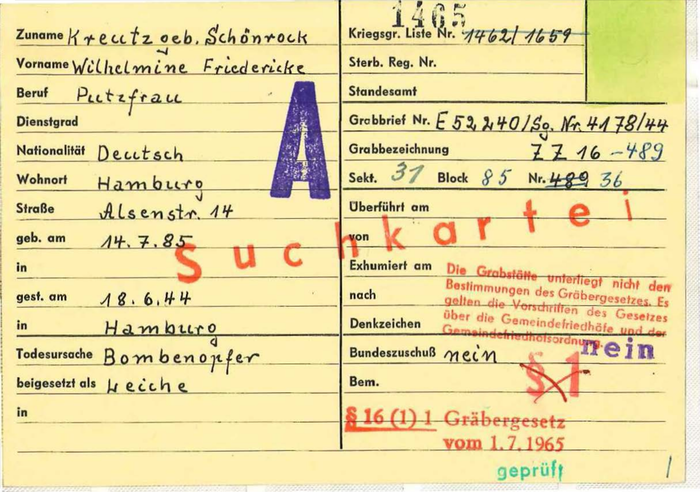 1465
Zuname Kreutz geb. Schönrock
Vorname Wilhelmine Friedericke
Beruf Putzfrau
Dienstgrad
Nationalität Deutsch
Wohnort Hamburg
Straße Alsenstr. 14
geb. am 14.7.85
in
gest. am 18.6.44
in Hamburg
Todesursache Bombenopfer
beigesetzt als Leiche
in
A
Suchkartei
Kriegsgr. Liste Nr. 1462/1659
Sterb. Reg. Nr.
Standesamt
Grabbrief Nr. E 52240/Sg. Nr. 4178/44
Grabbezeichnung ZZ 16 -489
Sekt. 31 Block 85 Nr. 489 36
Überführt am
von
Exhumiert am
nach
Denkzeichen
Die Grabstätte unterliegt nicht den
Bestimmungen des Gräbergesetzes. Es
gelten die Vorschriften des Gesetzes
über die Gemeindefriedhöfe und der
Gemeindefriedhofsordnung.
Bundeszuschuß nein nein
Bem. § 1
§ 16 (1) 1 Gräbergesetz
vom 1.7.1965
geprüft